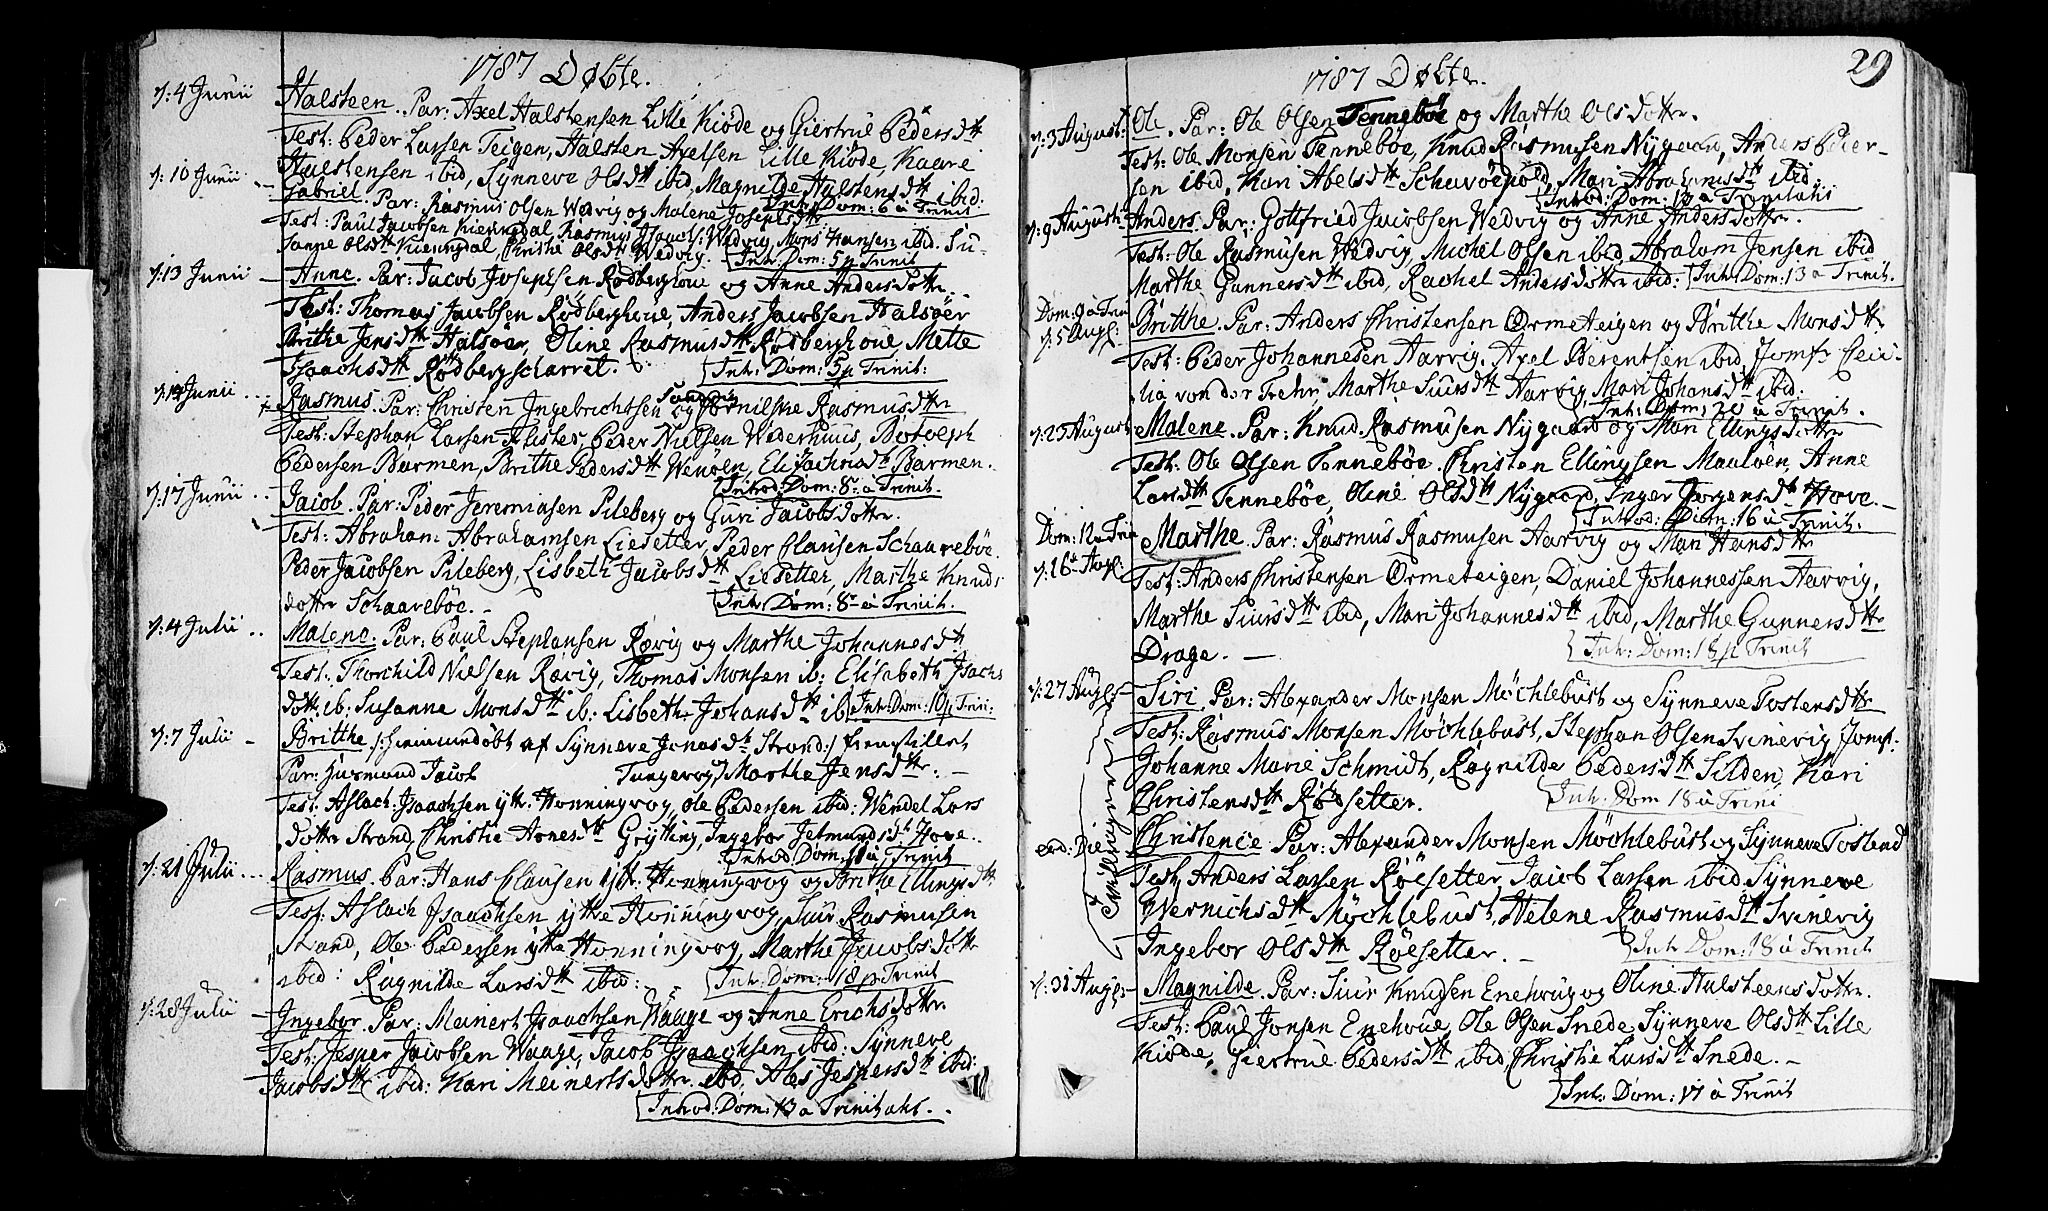 1787 Døbte.
d: 4 Junii Halsteen. Par: Axel Halstensen Lille Kiøde og Giertrue Pedersdtt
Test: Peder Larsen Teigen, Halsten Axelsen Lille Kiøde, Kaare
Halstensen ibid, Synneve Olsdtt ibid, Magnilde Halstensdtt ibid:
Int: Dom: 6 à Trinit
d: 10 Junii Gabriel. Par: Rasmus Olsen Wedvig og Malene Josephsdtt
Test: Paul Jacobsen Rasmus Isaachs: Wedvig, Mons Hansen ibid. Su-
sanne Olsdtt Christie Olsdtt Wedvig. Int: Dom: 5 p Trinit
d: 13 Junii Anne. Par: Jacob Josephsen Rødberghoue og Anne Andersdotter.
Test: Thomas Jacobsen Rødberghoue, Anders Jacobsen Halsøer
Brithe Jensdtt Halsøer, Oline Rasmusdtt Rødberghoue Mette
Isaachsdtt Rødbergscharret. Int: Dom: 5 p Trinit:
d: 14 Junii Rasmus. Par: Christen Ingebrichtsen Sandvig og Pernilske Rasmusdttr
Test: Stephan Larsen Flister, Peder Nielsen Wederhuus, Botolph
Pedersen Barmen, Brithe Pedersdtt Wenøen, Eli Zachrisdt Barmen.
Introd: Dom: 8 à Trinit.
d: 17 Junii Jacob. Par: Peder Jeremiasen Pileberg og Guri Jacobsdotter.
Test: Abraham Abrahamsen Liesetter, Peder Clausen Schaarebøe.
Peder Jacobsen Pileberg, Lisbeth Jacobsdtt Liesetter, Marthe Knuds
dotter Schaarebøe. Int: Dom: 8 à Trinit.
d: 4 Julii Malene. Par: Paul Stephansen Rævig og Marthe Johannesdtt
Test: Thorchild Nielsen Rævig, Thomas Monsen ib: Elisabeth Isachs
dottr. ib: Susanne Monsdtt ib: Lisbeth Johansdtt ib: Int: Dom: 10 p Trin:
d: 7 Julii Britthe /: hiemmedøbt af Synneve Jonasdtt Strand :/ fremstillert
Par: Husmand Jacob Tungevog, Marthe Jensdttr.
Test: Aslach Isaachsen ytt: Honningvog, Ole Pedersen ibid: Wendel Lars
dotter Strand, Christie Aonesdtt Grytting, Ingebor Jetmundsdt Hove.
Introd: Dom: 11 à Trinit
d: 21 Julii Rasmus. Par: Hans Clausen ytt: Honningvog og Brithe Ellingsdtt
Test: Aslach Isaachsen ytte Honningvog, Siur Rasmusen
Strand, Ole Pedersen ytte Honningvog, Marthe Jacobsdottr
ibid: Ragnilde Larsdtt ibid: Int: Dom: 18 p Trinit
d: 28 Julii Ingebor. Par: Meinert Isaachsen Waage og Anne Erichsdotter
Test: Jesper Jacobsen Waage, Jacob Isaachsen ibid: Synneve
Jacobsdtt ibid: Kari Meinertsdotter ibid, Ales Jespersdtt ibid:
Introd: Dom: 13 a Trinitatis.
1787 Døbte.
29
d: 3 August: Ole. Par: Ole Olsen Tennebøe og Marthe Olsdotter.
Test: Ole Monsen Tennebøe, Knud Rasmusen Nygaard, Anders Peder-
sen ibid, Kari Abelsdtt Mari Abrahamsdtt ibid:
Introd: Dom: 13 a Trinitatis
d: 9 August: Anders. Par: Gottfried Jacobsen Wedvig og Anne Andersdotter.
Test: Ole Rasmusen Wedvig, Michel Olsen ibid, Abralom Jensen ibid
Marthe Gunnersdtt ibid, Rachel Andersdotter ibid: Int: Dom: 13 a Trinit.
Dom: 9 a Trin
d: 5 Augl: Britthe. Par: Anders Christensen Ormeteigen og Brithe Monsdttr
Test: Peder Johannesen Aarvig, Axel Berentsen ibid, Jomfr: Ceci-
lia von der Fehr, Marthe Siursdtt Aarvig, Mari Johansdtt ibid.
Int: Dom: 20 à Trinit.
d: 23 August Malene. Par: Knud Rasmusen Nygaard og Mari Ellingsdotter
Test: Ole Olsen Tennebøe. Christen Ellingsen Maaløen, Anne
Larsdtt Tennebøe, Oline Olsdtt Nygaard, Inger Jørgensdt Hove.
Introd: Dom: 16 à Trinit.
Dom: 12 a Trin
d: 26 Augl: Marthe. Par: Rasmus Rasmusen Aarvig og Mari Hansdttr
Test: Anders Christensen Ormeteigen, Daniel Johannessen Aarvig,
Marthe Siursdtt ibid, Mari Johannesdtt ibid, Marthe Gunnersdttr
Drage. Int: Dom: 18 p Trinit
d: 27 Augl: Siri. Par: Alexander Monsen Møchlebust og Synneve Tostensdttr
Test: Rasmus Monsen Møchlebust, Stephan Olsen Svinevig Jomf:
Johanne Marie Schmidt, Ragnilde Pedersdtt Silden, Kari
Christensdtt Rødsetter. Int: Dom 18 à Trini
Tvillinger
eod: Die Christence Par: Alexander Monsen Møchlebust og Synneve Tostensd
Test: Anders Larsen Røesetter, Jacob Larsen ibid Synneve
Wernichsdtt Møchlebust, Helene Rasmusdtt Svinevig
Ingebor Olsdtt Røesetter. Int: Dom: 18 à Trinit
d: 31 Augl: Magnilde. Par: Siur Knudsen Enehoug og Oline Halsteensdotter.
Test: Paul Jonsen Enehoue, Ole Olsen Snede, Synneve Olsdtt Lille
Kiøde, Giertrue Pedersdtt ibid, Christie Larsdtt Snede.
Int: Dom: 17 à Trinit